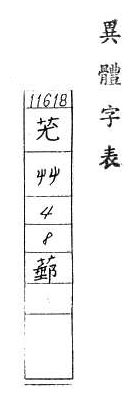 異體字表
11618
艸
4
8